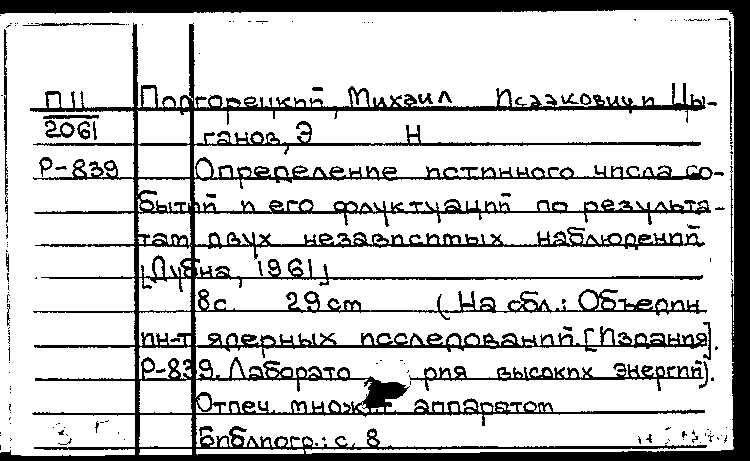 П11 Подгорецкий, Михаил Исаакович и Цы-
2061 ганов, Э Н
Р-839 Определение истинного числа со-
бытий и его флуктуаций по результа-
там двух независимых наблюдений
[Дубна, 1961]
8с. 29cm (На обл.: Объедин
ин-т ядерных исследований. [Издания].
Р-839. Лаборато рия высоких энергий).
Отпеч. множит аппаратом
Библиогр.: с. 8